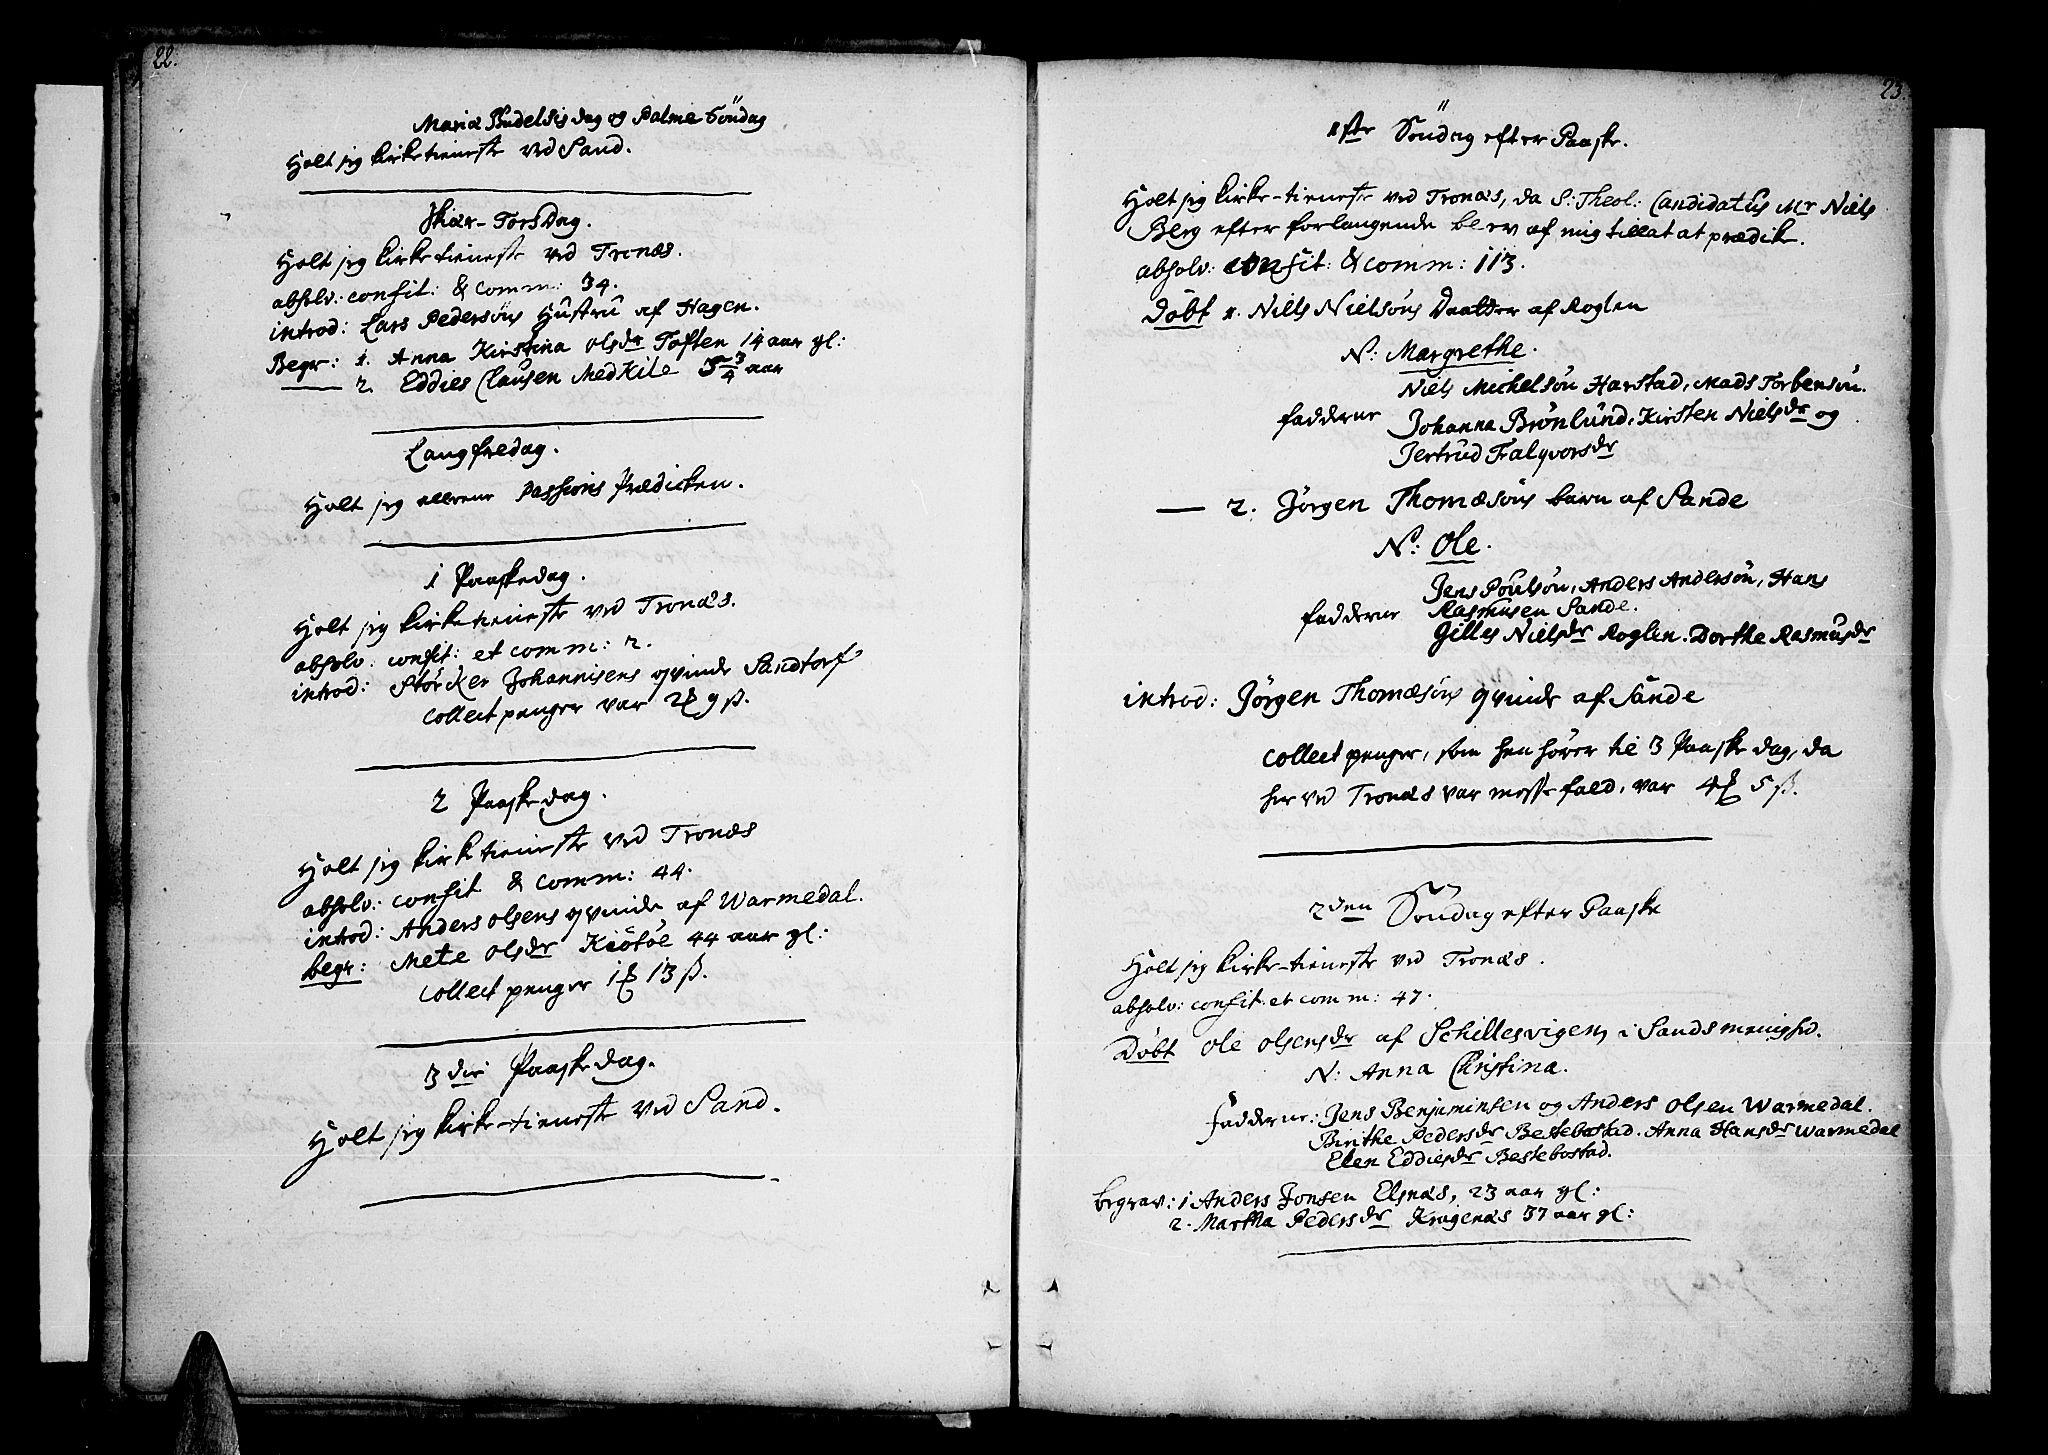 22.
Mariæ Budelsis dag og Palme Söndag
Holt jeg kirketieneste ved Sand.
Skiær-Torsdag.
Holt jeg kirketieneste ved Tronæs.
absolv: confit: & comm: 34.
introd: Lars Pedersöns Hustru af Hagen.
Begr: 1. Anna Kirstina olsdr Toften 14 aar gl:
2. Eddies Clausen MedKile 5 3/4 aar
Langfredag.
Holt jeg allene Passions Prædicken.
1 Paaskedag.
Holt jeg kirketieneste ved Tronæs.
absolv: confit: et comm: 2.
introd: Störcker Johannisens qvinde Sandtorf
collect penger var 2 9 ß.
2 Paaskedag.
Holt jeg kirketieneste ved Tronæs
absolv: confit & comm: 44.
introd: Anders olsens qvinde af Warmedal.
begr: Mete olsdr Kiötöe 44 aar gl:
collect penger 1 13 ß.
3die Paaskedag.
Holt jeg kirke-tieneste ved Sand.
23.
1ste Söndag efter Paaske.
Holt jeg kirke-tieneste ved Tronæs, da S: Theol: Candidatus Mr Niels
Berg efter forlangende blev af mig tillat at prædike.
absolv: confit: & comm: 113.
Döbt 1. Niels Nielsöns Daatter af Roglen
N: Margrethe.
Niels Michelsön Harstad, Mads Torbensön.
fadderne Johanna Brönlund, Kirsten Nielsdr og
Jertrud Falqvorsdr
2. Jörgen Thomæsöns barn af Sande
N: Ole.
Jens Poulsön, Anders Andersön, Hans
fadderne Rasmusen Sande.
Gilles Nielsdr Roglen. Dorthe Rasmusdr
introd: Jörgen Thomæsöns qvinde af Sande
collect penger, som henhörer til 3 Paaske dag, da
her ved Tronæs var messe fald, var 4 5 ß.
2den Söndag efter Paaske
Holt jeg kirke-tieneste ved Tronæs.
absolv: confit: et comm: 47.
Döbt Ole olsensdr af Schillesvigen i Sands menighd.
N: Anna Christina.
Fadderne: Jens Benjaminsen og Anders olsen Warmedal.
Birithe Pedersdr Bestebostad. Anna Hansdr Warmedal
Elen Eddiesdr Bestebostad.
begrav: 1 Anders Jonsen Elgnæs, 23 aar gl:
2. Martha Pedersdr Kragenæs 37 aar gl: